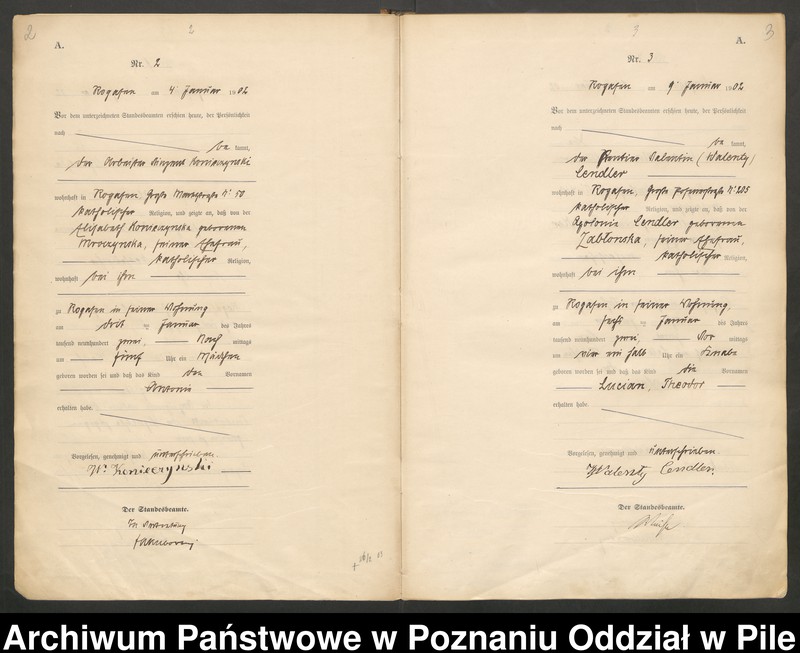 2
2
A.
Nr. 2
Rogasen am 4. Januar 1902
Vor dem unterzeichneten Standesbeamten erschien heute, der Persönlichkeit
nach
be kannt,
der Arbeiter Konieczynski
wohnhaft in Rogasen, große 50
katholischer Religion, und zeigte an, daß von der
Elisabeth Konieczynska geborenen
Mroczynska, seiner Ehefrau,
katholischer Religion,
wohnhaft bei ihm
zu Rogasen in seiner Wohnung
am drit ten Januar des Jahres
tausend neunhundert zwei, Nach mittags
um fünf Uhr ein Mädchen
geboren worden sei und daß das Kind den Vornamen
Antonie
erhalten habe.
Vorgelesen, genehmigt und unterschrieben
W. Konieczynski
Der Standesbeamte.
In Vertretung
3
3
A.
Nr. 3
Rogasen am 9. Januar 1902
Vor dem unterzeichneten Standesbeamten erschien heute, der Persönlichkeit
nach
be kannt,
der Rentier Valentin (Walenty)
Cendler
wohnhaft in Rogasen, große Posenerstraße N. 205
katholischer Religion, und zeigte an, daß von der
Apolonia Cendler geborenen
Zabłonska, seiner Ehefrau,
katholischer Religion,
wohnhaft bei ihm
zu Rogasen in seiner Wohnung,
am sechs ten Januar des Jahres
tausend neunhundert zwei, Vor mittags
um vier ein halb Uhr ein Knabe
geboren worden sei und daß das Kind die Vornamen
Lucian, Theodor
erhalten habe.
Vorgelesen, genehmigt und unterschrieben
Walenty Cendler.
Der Standesbeamte.
Archiwum Państwowe w Poznaniu Oddział w Pile